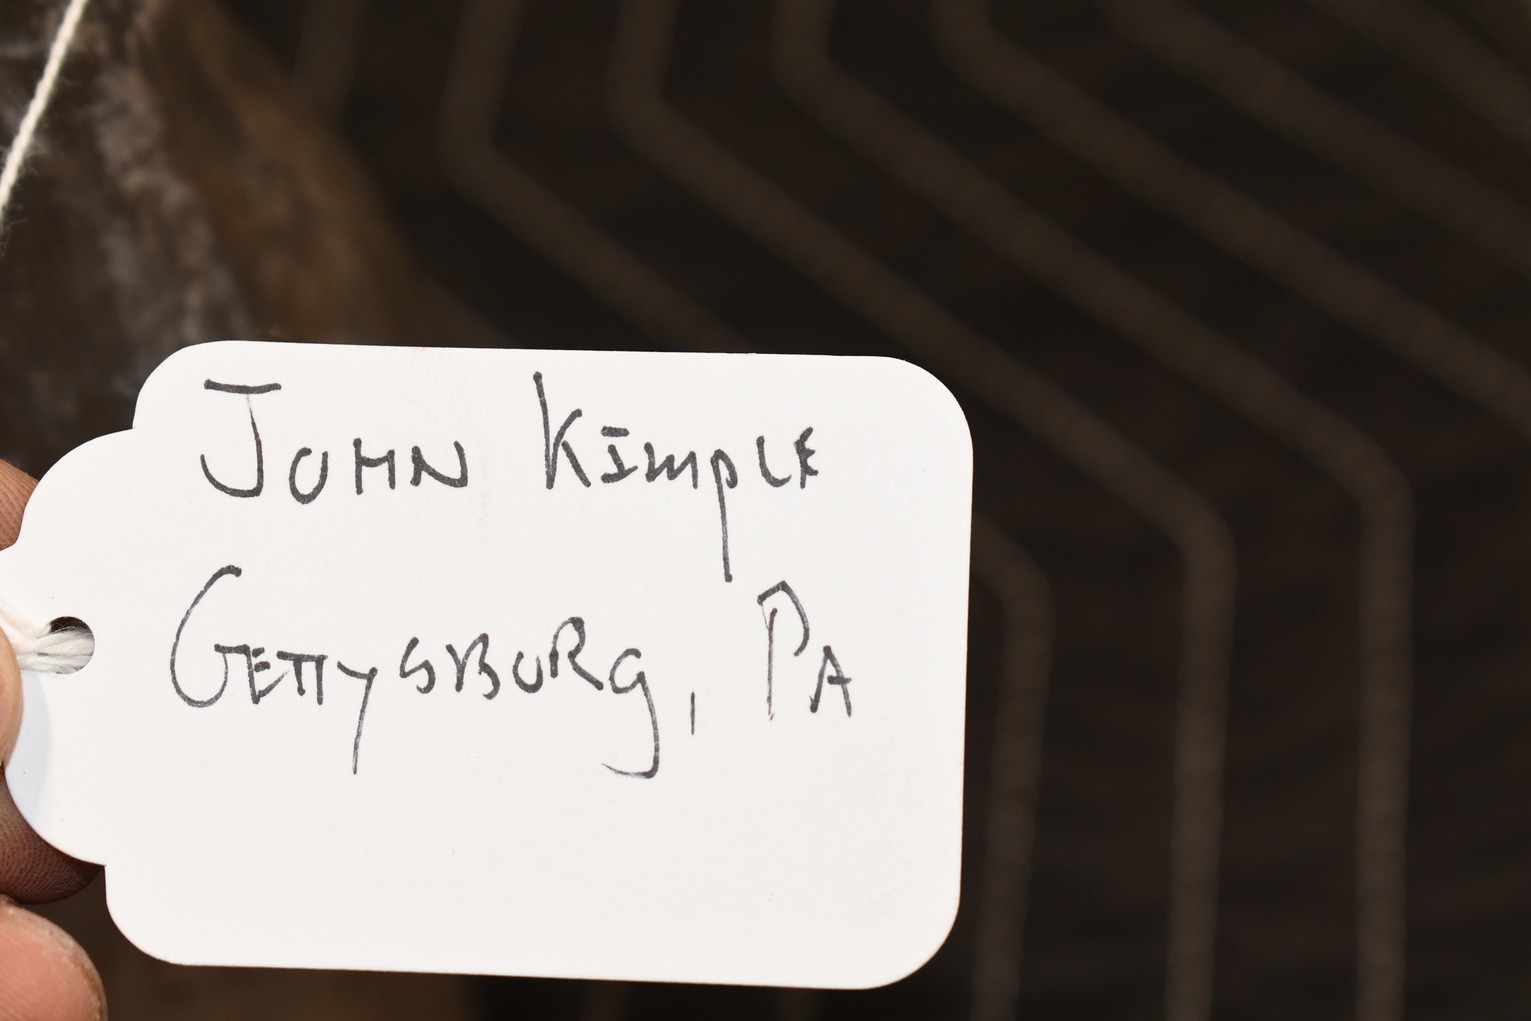 John Kimple
Gettysburg, PA